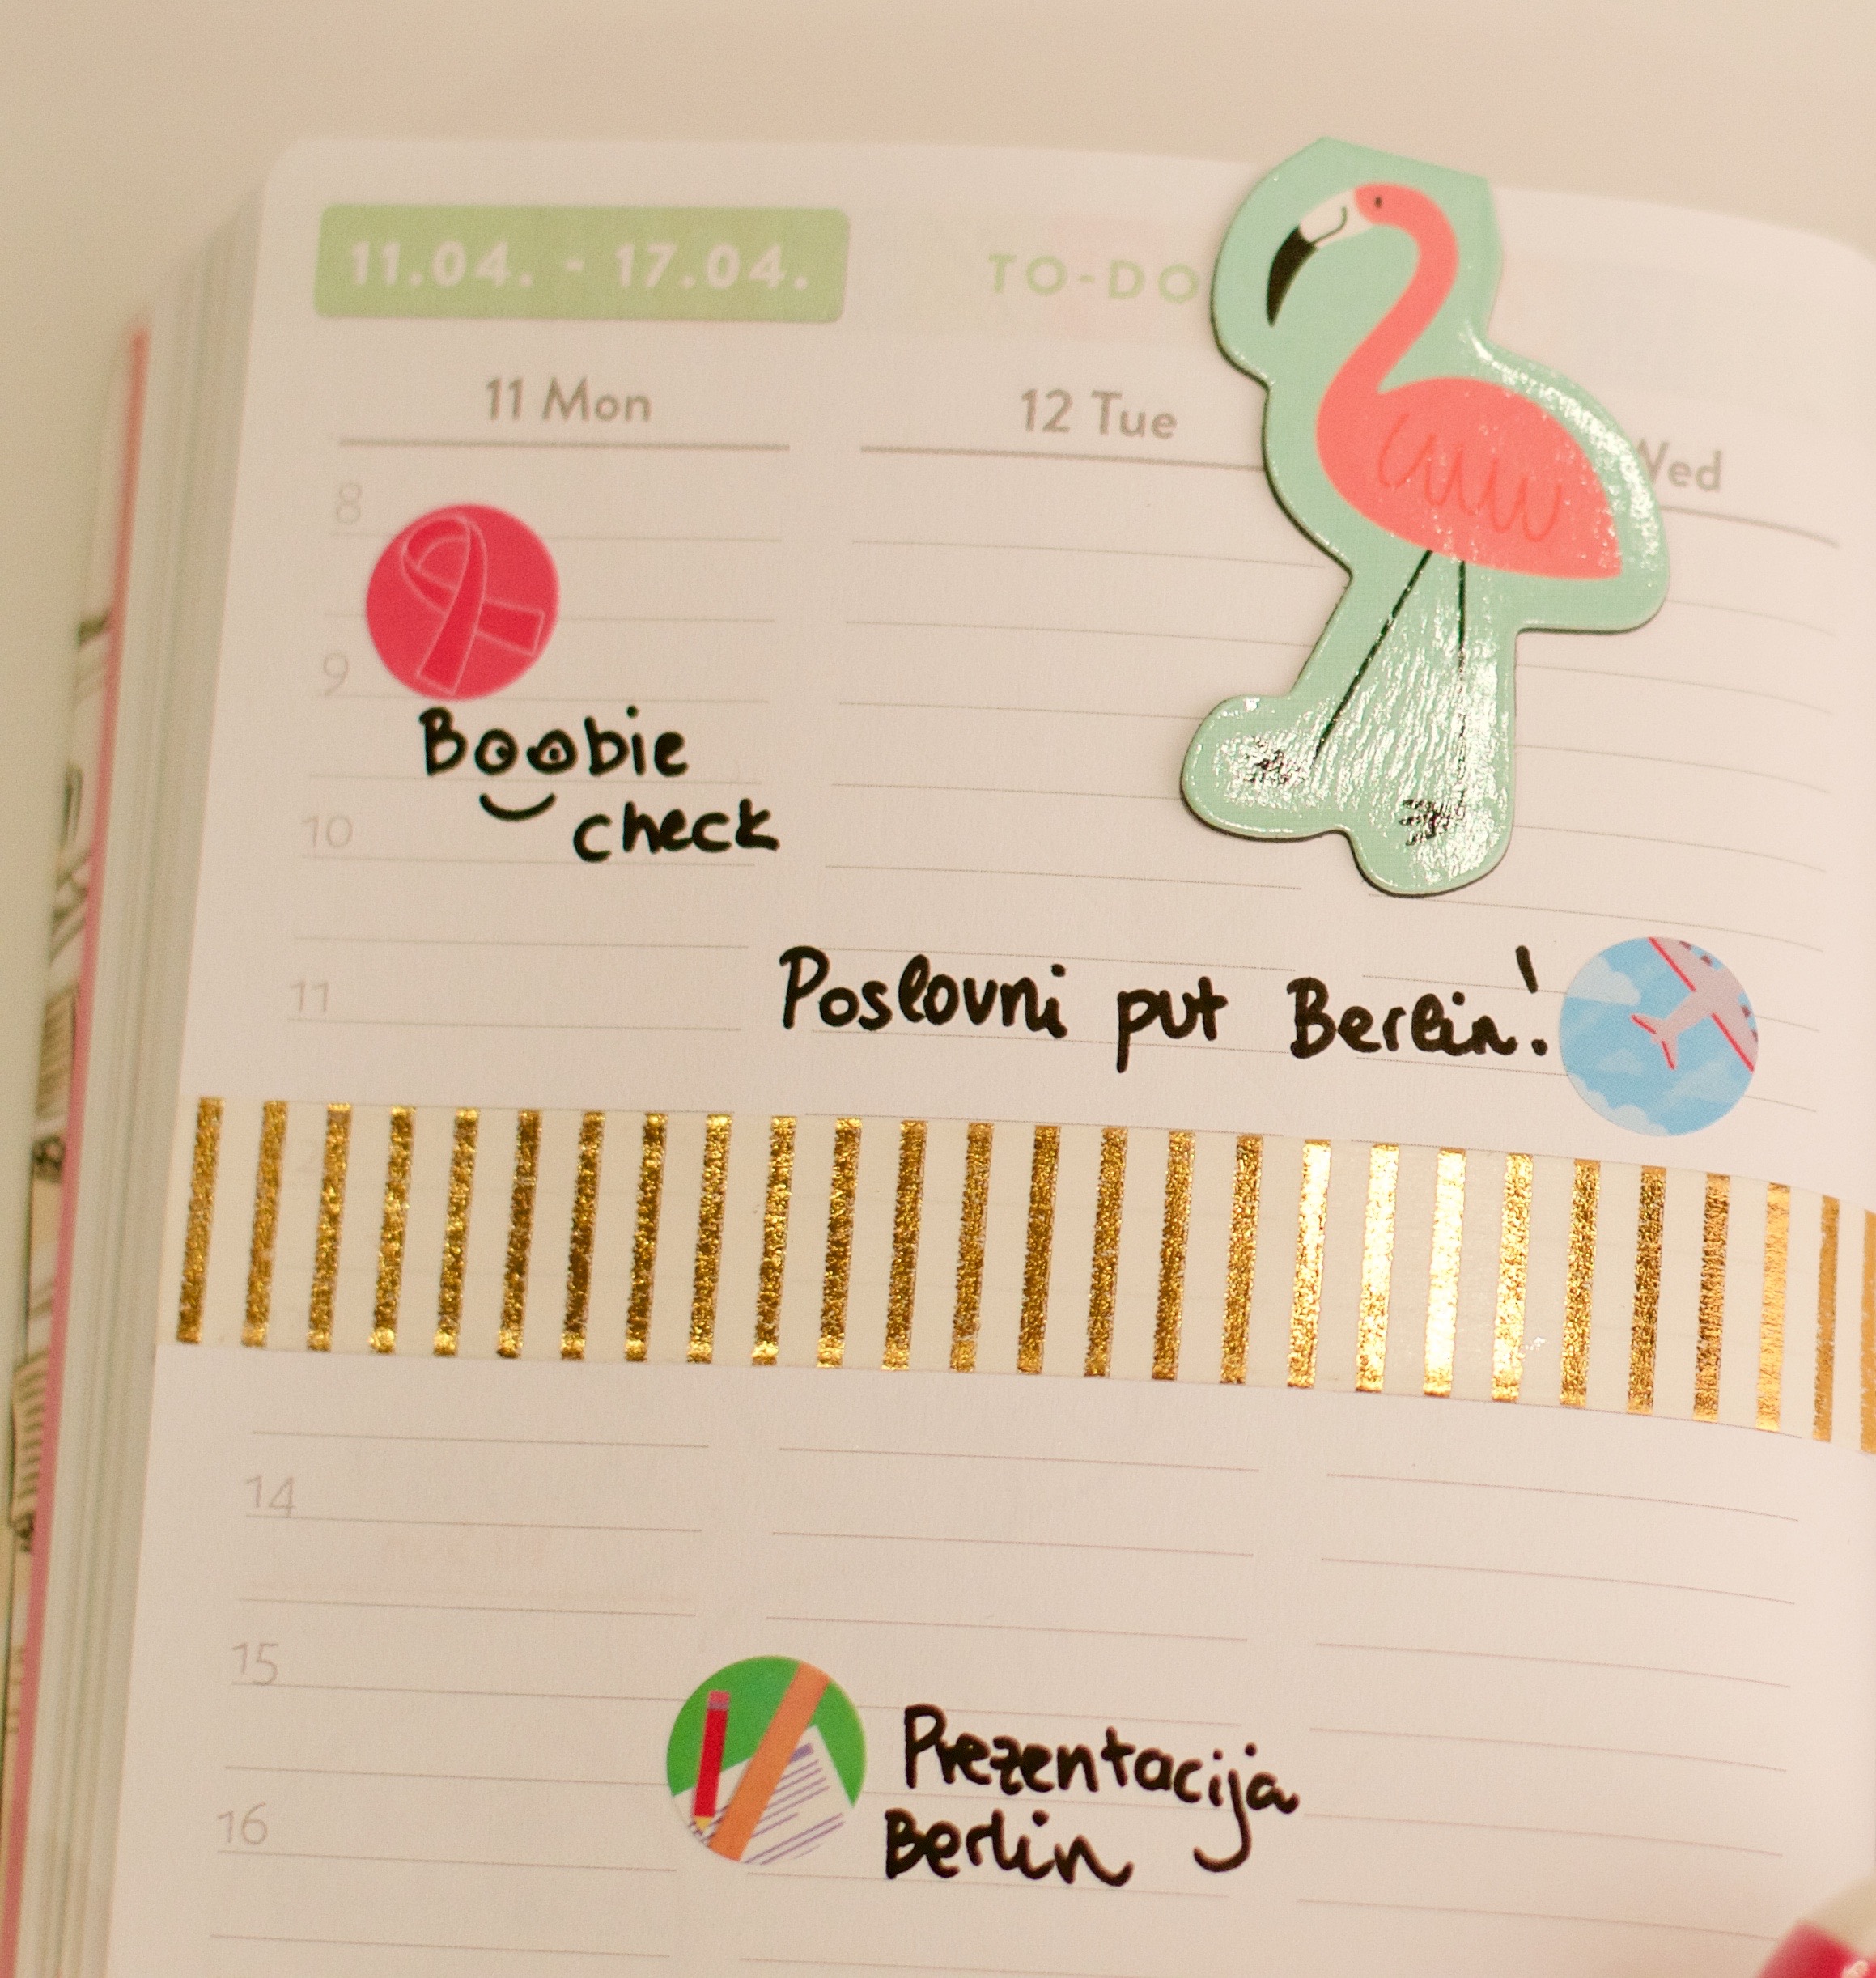 11.04. - 17.04.
TO-DO
11 Mon
12 Tue
Wed
8
9
Boobie
check
10
11
Poslovni put Berlin!
14
15
16
Prezentacija
Berlin